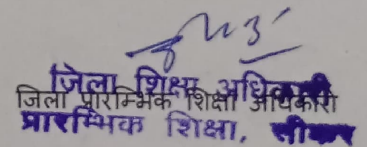 जिला शिक्षा अधिकारी
जिला प्रारम्भिक शिक्षा अधिकारी
प्रारम्भिक शिक्षा, सीकर